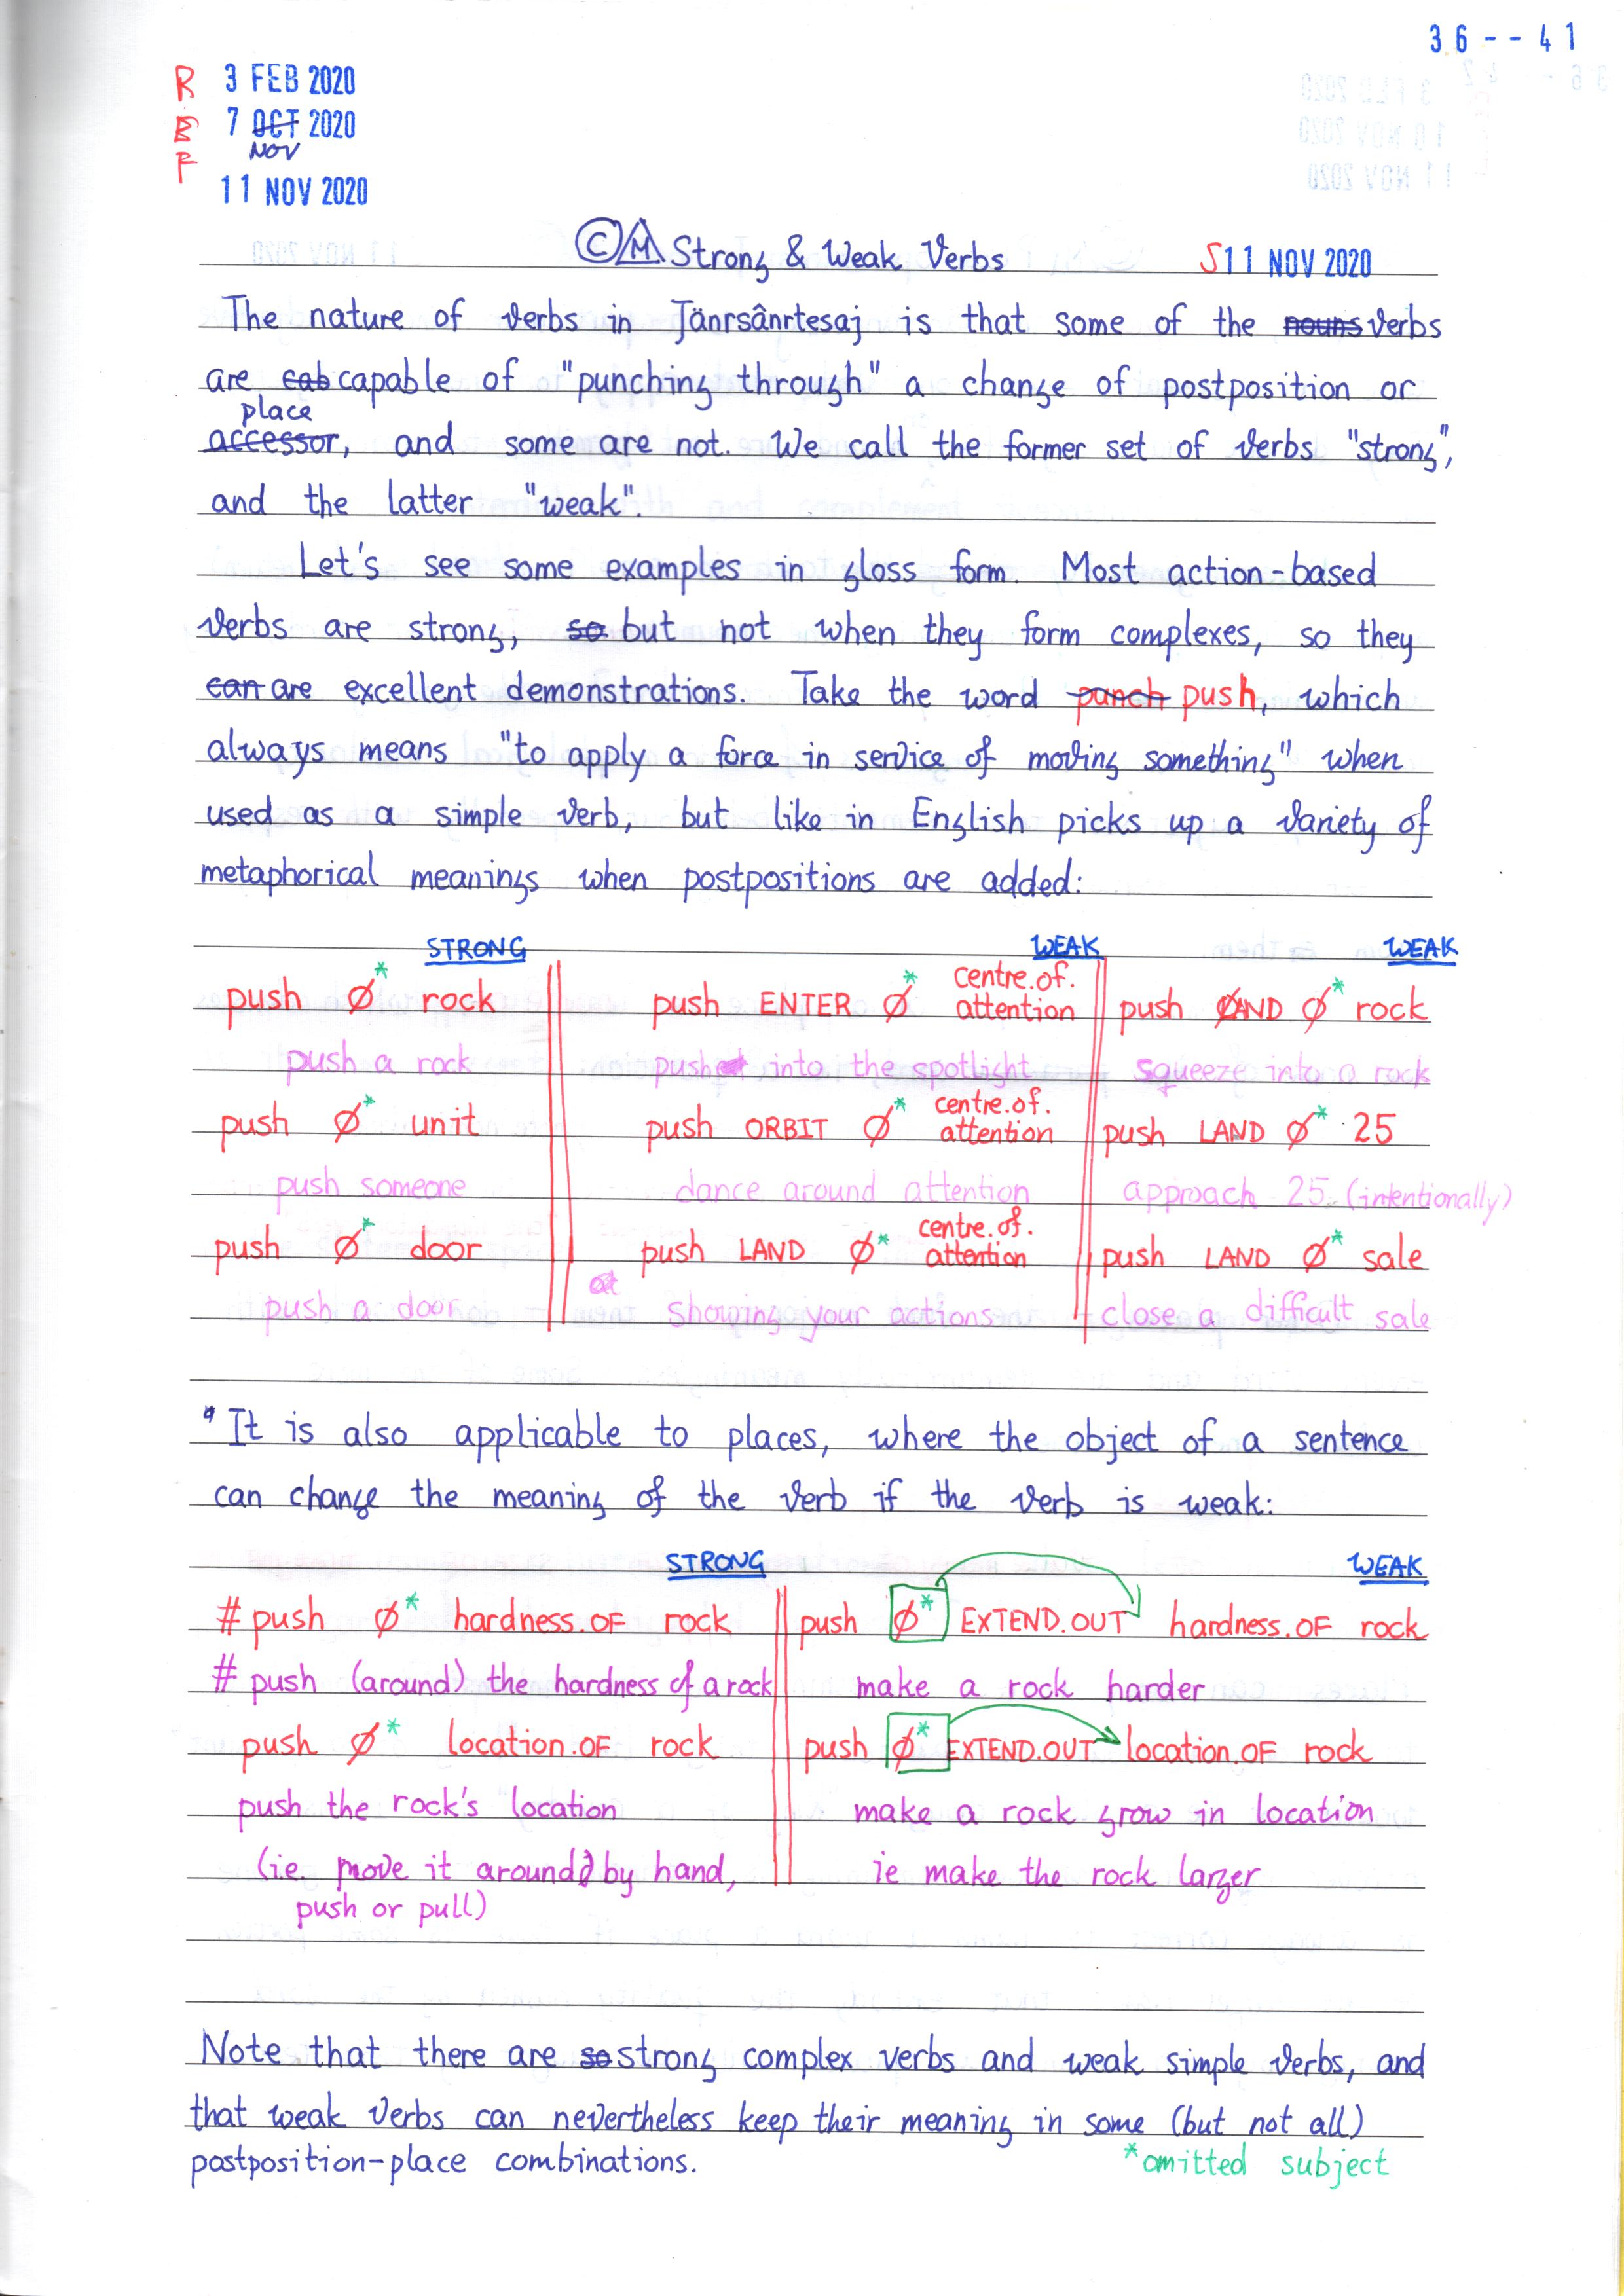 36--41
R 3 FEB 2020
E 7 OCT 2020
NOV
F
11 NOV 2020
C M Strong & Weak Verbs S 11 NOV 2020
The nature of verbs in Jänrsânrtesaj is that some of the nouns verbs
are cab capable of "punching through" a change of postposition or
place
accessor, and some are not. We call the former set of verbs "strong",
and the latter "weak".
Let's see some examples in gloss form. Most action-based
verbs are strong, so but not when they form complexes, so they
can are excellent demonstrations. Take the word punch push, which
always means "to apply a force in service of moving something" when
used as a simple verb, but like in English picks up a variety of
metaphorical meanings when postpositions are added:
STRONG WEAK WEAK
push ∅* rock push ENTER ∅* centre.of.attention push LAND ∅* rock
push a rock push into the spotlight squeeze into a rock
push ∅* unit push ORBIT ∅* centre.of.attention push LAND ∅* 25
push someone dance around attention approach 25 (intentionally)
push ∅* door push LAND ∅* centre.of.attention push LAND ∅* sale
push a door showing your actions close a difficult sale
It is also applicable to places, where the object of a sentence
can change the meaning of the verb if the verb is weak:
STRONG WEAK
# push ∅* hardness.OF rock push ∅* EXTEND.OUT hardness.OF rock
# push (around) the hardness of a rock make a rock harder
push ∅* location.OF rock push ∅* EXTEND.OUT location.OF rock
push the rock's location make a rock grow in location
(i.e. move it around by hand, ie make the rock larger
push or pull)
Note that there are so strong complex verbs and weak simple verbs, and
that weak verbs can nevertheless keep their meaning in some (but not all)
postposition-place combinations. *omitted subject